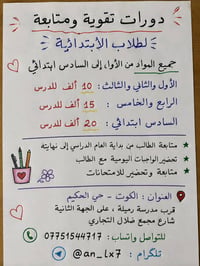 دورات تقوية ومتابعة
لطلاب الأبتدائية
جميع المواد من الأول إلى السادس ابتدائي
الأول والثاني والثالث: 10 ألف للدرس
الرابع والخامس : 15 ألف للدرس
السادس ابتدائي : 20 ألف للدرس
★ متابعة الطالب من بداية العام الدراسي إلى نهايته
★ تحضير الواجبات اليومية مع الطالب
★ متابعة وتحضير للامتحانات
العنوان : الكوت - حي الحكيم
قرب مدرسة رميلة ، على الجهة الثانية
شارع مجمع ضلال التجاري
للتواصل واتساب : 07751544717
تلگرام : @an_lx7